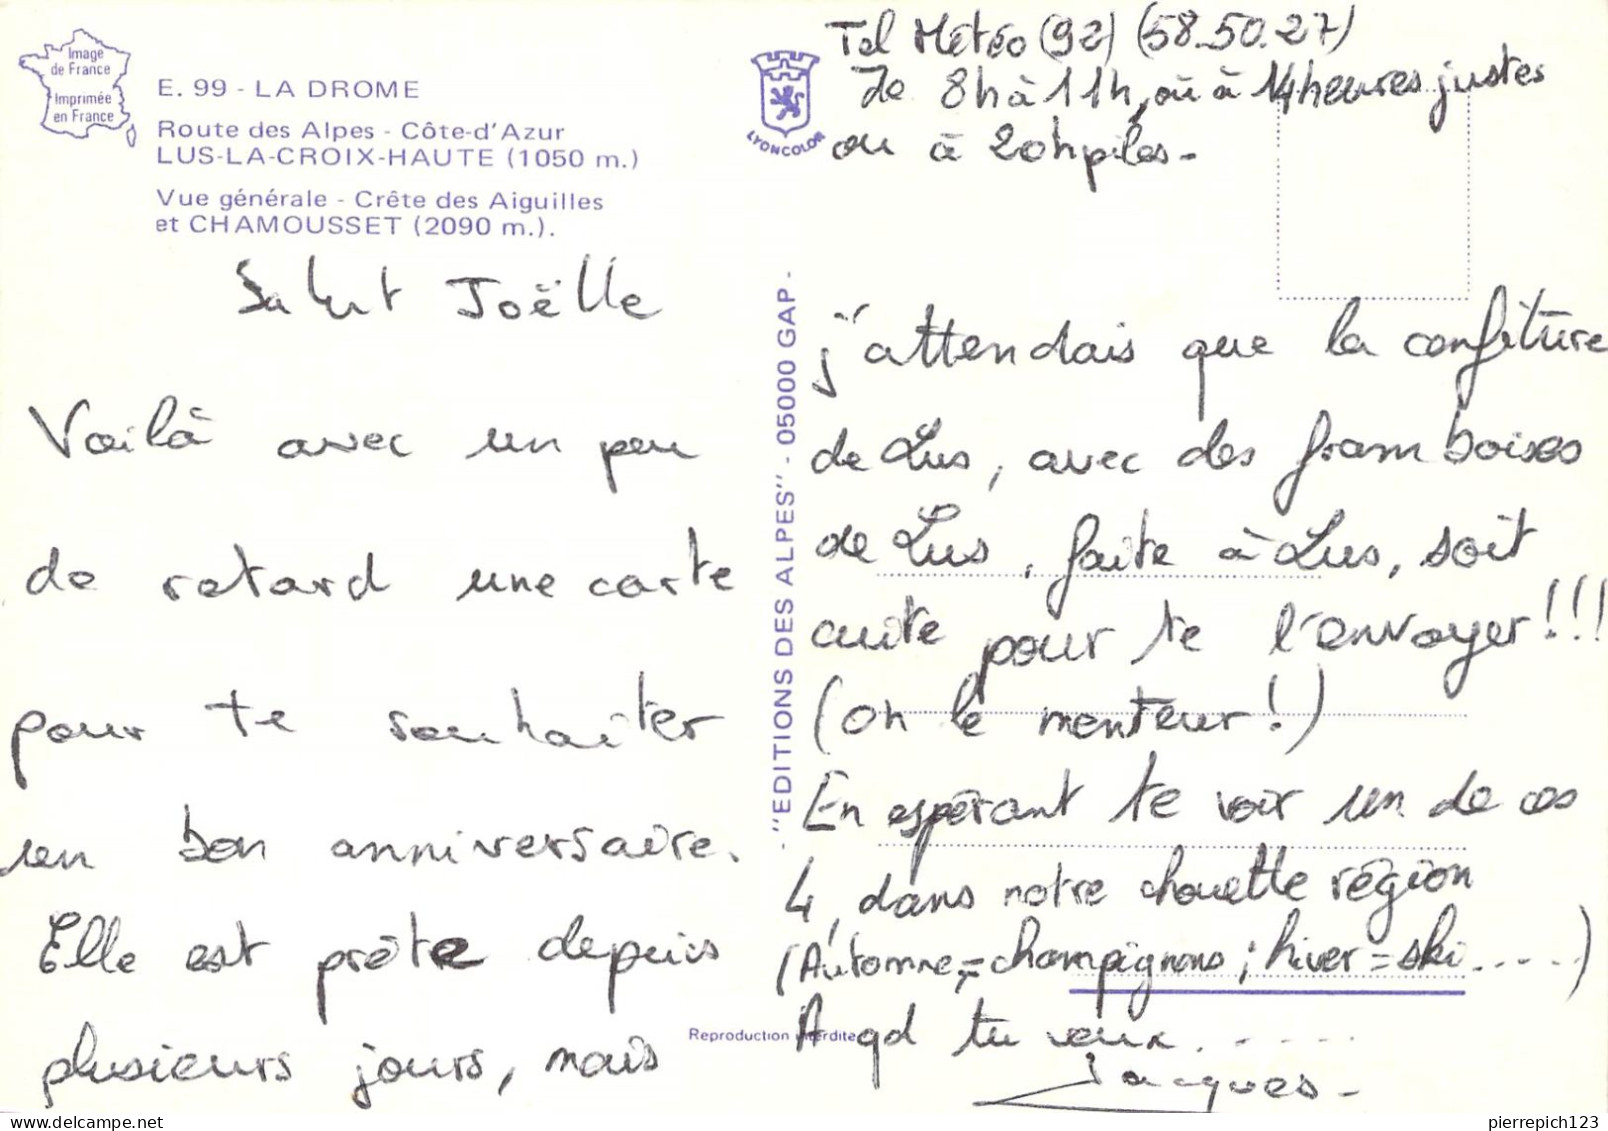 Image
de France
Imprimée
en France
E. 99 - LA DROME
Route des Alpes - Côte-d'Azur
LUS-LA-CROIX-HAUTE (1050 m.)
Vue générale - Crête des Aiguilles
et CHAMOUSSET (2090 m.).
LYONCOLOR
Tel Météo (92) (58.50.27)
De 8h à 11h, où à 14 heures justes
ou à 20h piles-
Salut Joëlle
Voilà avec un peu
de retard une carte
pour te souhaiter
un bon anniversaire.
Elle est prête depuis
plusieurs jours, mais
"EDITIONS DES ALPES" - 05000 GAP -
j'attendais que la confiture
de Lus, avec des framboises
de Lus, faite à Lus, soit
cuite pour te l'envoyer!!!
(Oh le menteur!)
En espérant te voir un de ces
4, dans notre chouette région
(Automne,= champignons; hiver = ski.....)
A qd tu veux.......
Jacques-
Reproduction interdite
pierrepich123